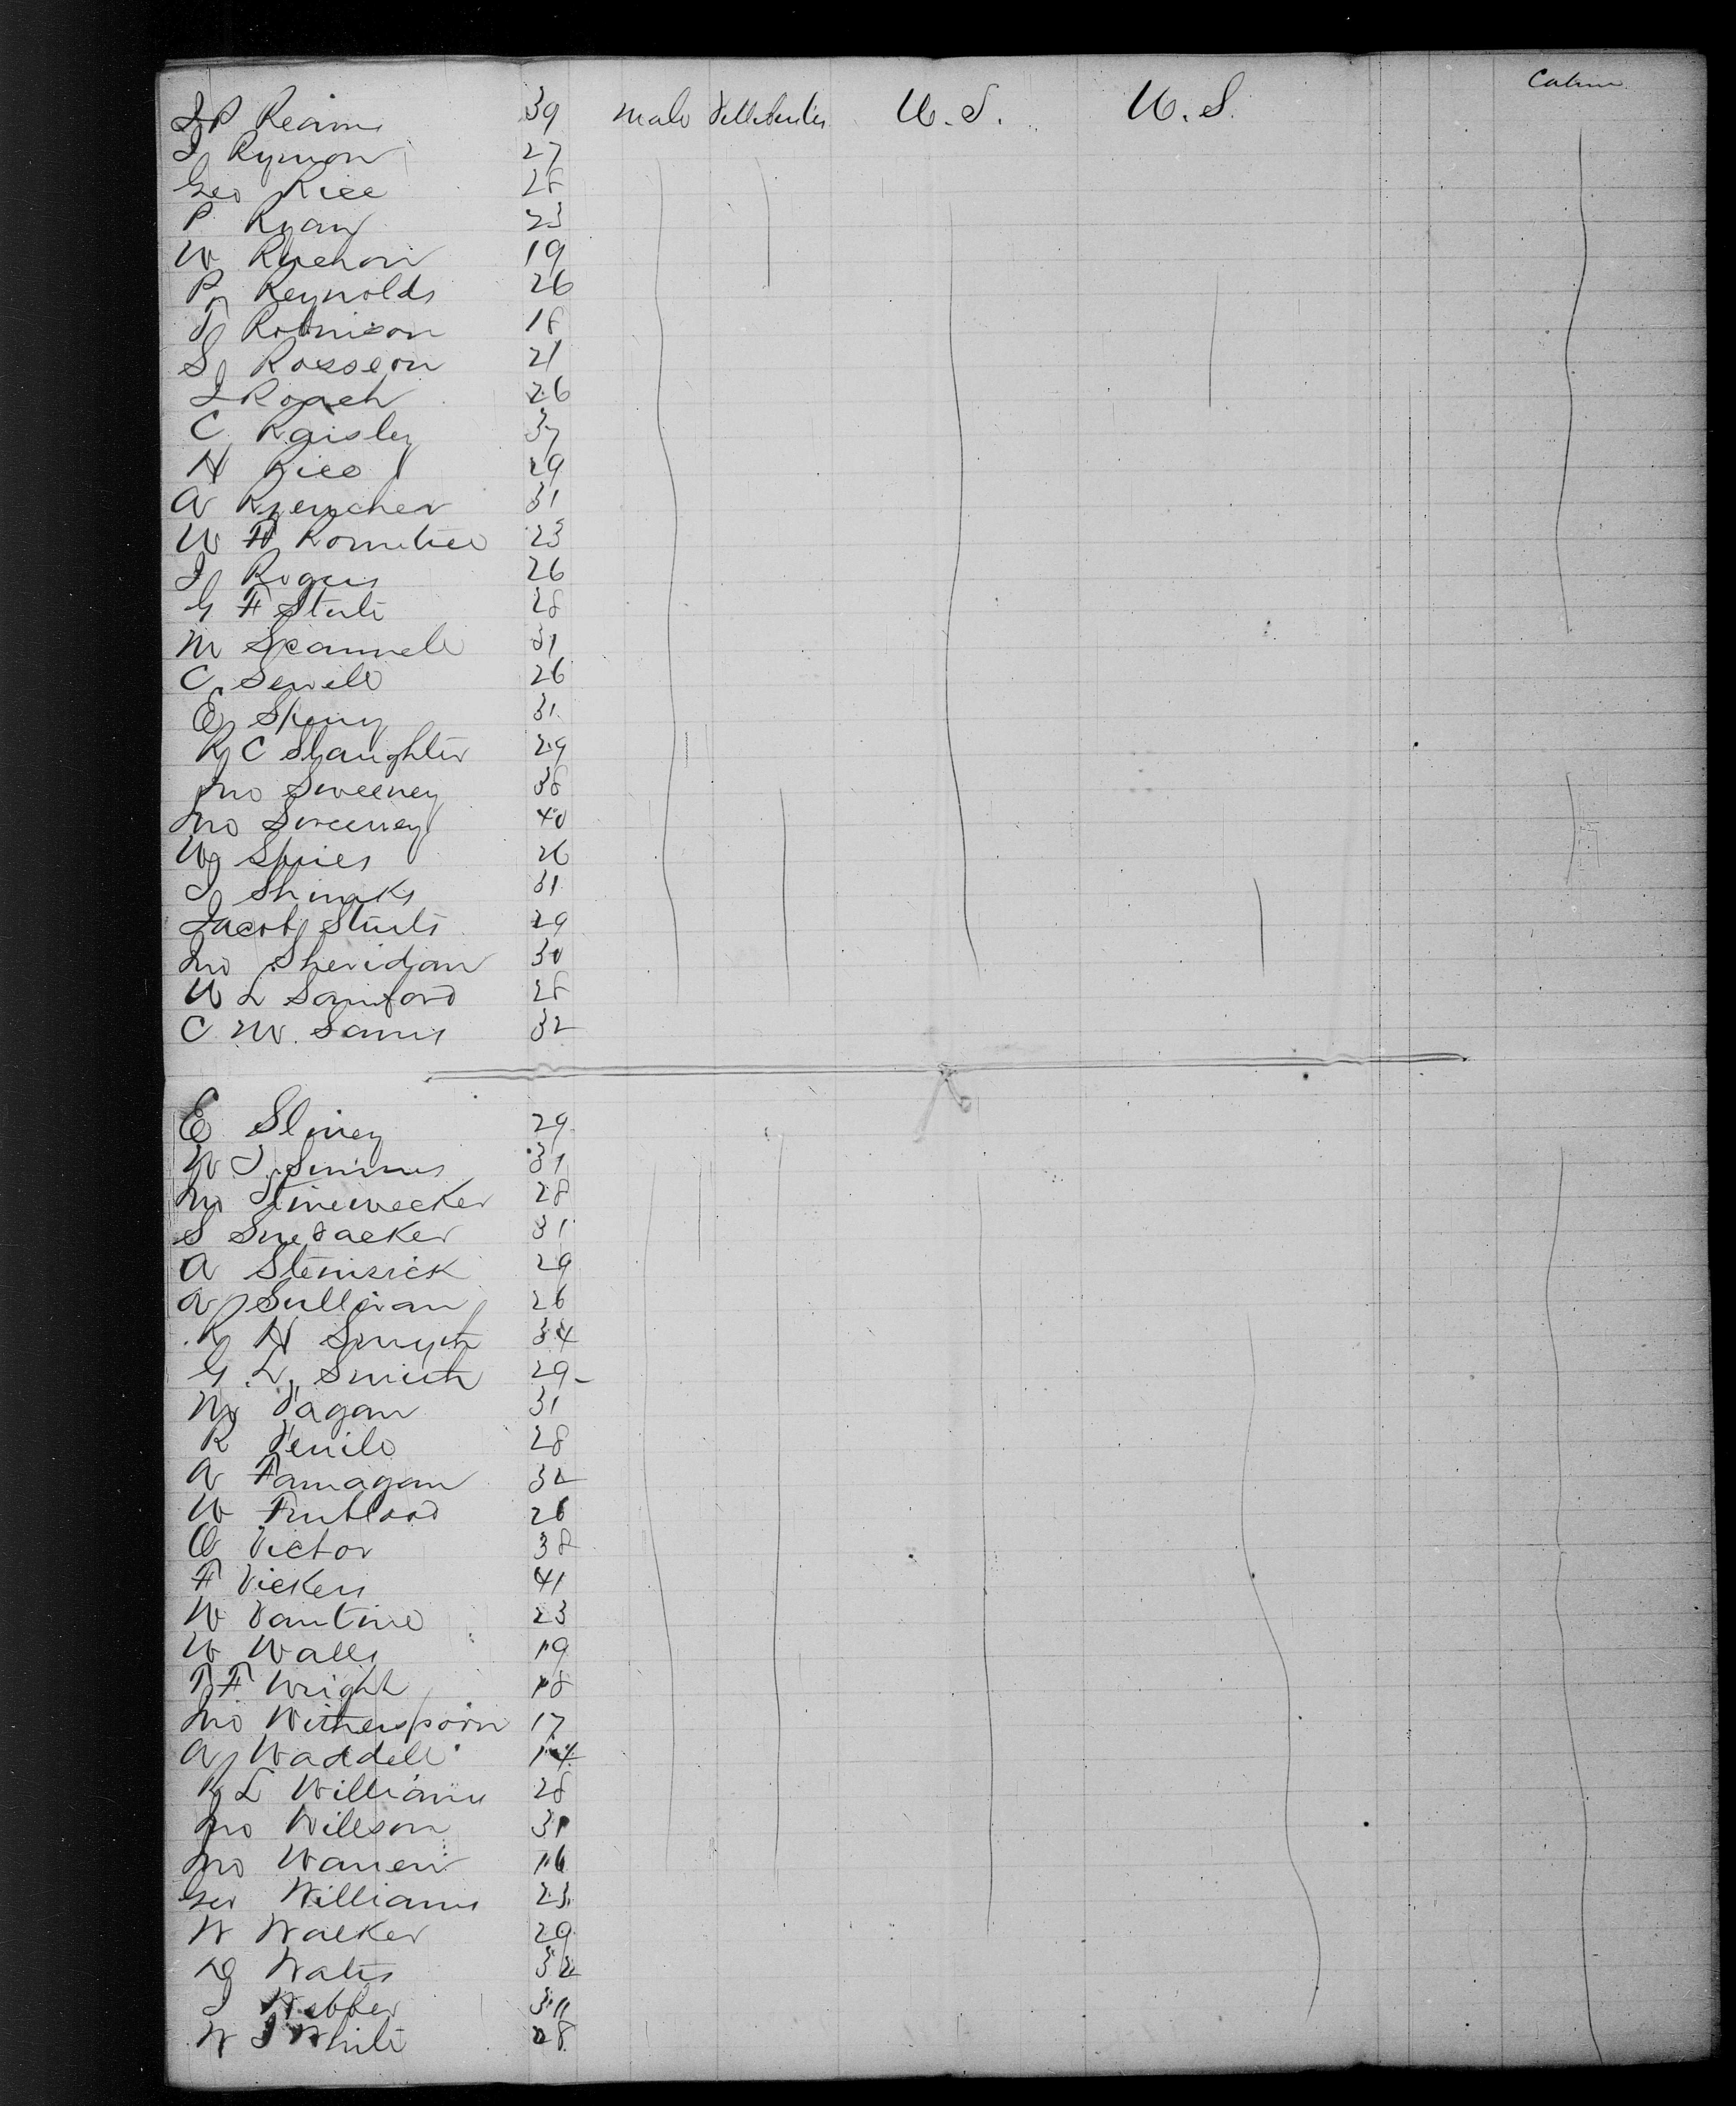 J P Reams 39 male Filibuster U.S. U.S. Cabin
J Rymon 27
Geo Rice 28
P Ryan 23
W 19
P Reynolds 26
T Robinson 18
S Rosseon 21
J Roach 26
C Raisley 37
H Rice 29
A 31
W H Romtree 23
J Rogers 26
G F Stute 28
M Scannell 31
C Sewell 26
E 31
R C Slaughter 29
Jno Sweeney 38
Jno Sweeney 40
W Spies 26
J Shinaks 31
Jacob 29
Jno Sheridan 30
W L Samford 28
C W Sams 32
E Sliney 29
W J Simms 31
Jno Stinewecker 28
S Snedaeker 31
A Stemsick 29
A Sullivan 26
R H Smyth 34
G L Smith 29
M Fagan 31
R 28
A Farnagan 32
W Trublood 26
O Victor 38
F Vickers 41
W Vantine 23
W Walls 19
T F Wright 18
Jno Witherspoon 17
A Waddell 14
R L Williams 28
Jno Willson 31
Jno Warren 16
Geo Williams 23
W Walker 29
D Watts 32
J Webber 31
W J White 28